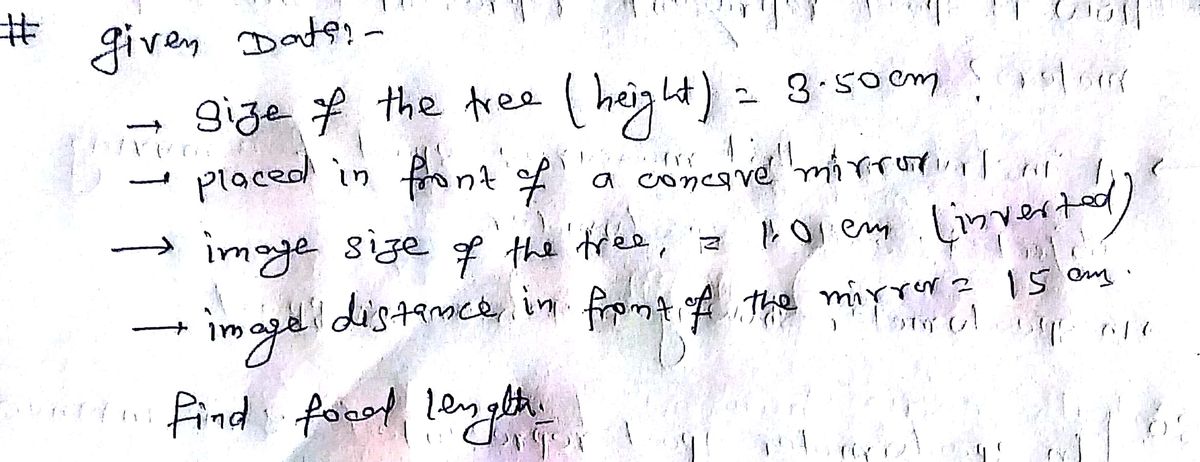 # given Data:-
→ Size of the tree (height) = 3.50cm
→ placed in front of a concave mirror
→ image size of the tree, = 1.01 cm (inverted)
→ image distance in front of the mirror = 15 cm.
find focal length.